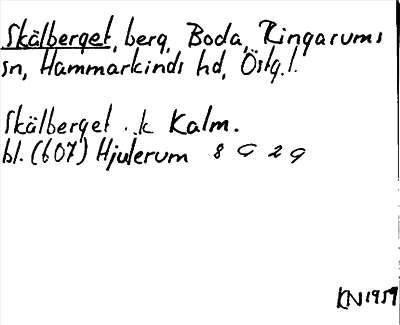 Skälberget, berg, Boda, Ringarums
sn, Hammarkinds hd, Östg.l.
Skälberget .k Kalm.
bl. (607) Hjulerum 8 G 2 g
KN1959